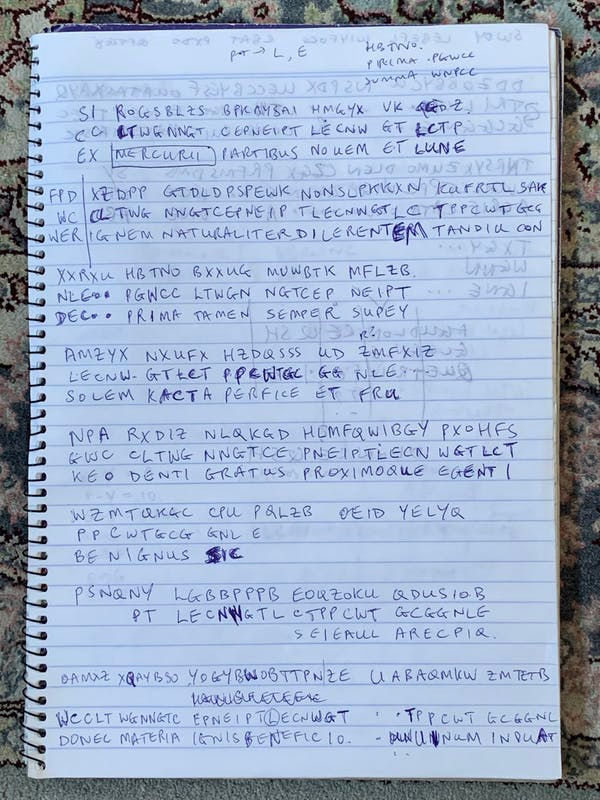 pot → L, E
HBTNO.
PRIMA. PGWCC
SUMMA. WNPCC
SI ROGSBLZS BPKAYBAI HMGYX VK
CC LTWGNNGT CEPNEIPT LECNW GT LCTP
EX MERCURII PARTIBUS NOUEM ET LUNE
FPD XZDPP GTDLDPSPEWK NONSLPKKXN KUFRTLSAK
WC CLTWG NNGTCEPNEIP TLECNWGTLC TPPCWTGCG
WER IGNEM NATURALITER DILERENTEM TANDIU CON
XXRXU HBTNO BXXUG MUWBTK MFLZB.
NLE.. PGWCC LTWGN NGTCEP NEIPT
DEC.. PRIMA TAMEN SEMPER SUPEY
R?
AMZYX NXUFX HZDQSSS UD ZMFXIZ
LECNW. GTLCT PPCWTGC GG NLE..
SOLEM KACTA PERFICE ET FRU
NPA RXDIZ NLQKGD HLMFQWIBGY PXOHFS
GWC CLTWG NNGTCE PNEIPTLECN WGTLCT
KEO DENTI GRATUS PROXIMOQUE EGENTI
WZMTQKGC CPU PQLZB OEID YELYQ
PPCWTGCG GNL E
BENIGNUS SIC
PSNQNY LGBBPPPB EOQZOKU QDUSIOB
PT LECNWGTL CTPPCWT GCGGNLE
SEIEAUL ARECPIQ.
DAMXZ XQAYBSO YOGYBWOBTTPNZE UABAQMKW ZMTETB
WCCLT WGNNGTC EPNEIPTLECNWGT TPPCWT GCGGNL
DONEC MATERIA IGNISBENEFICIO. INDUAT